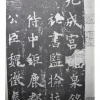 九成宮醴泉銘
秘書監檢校
侍中鉅鹿郡
公臣魏徵